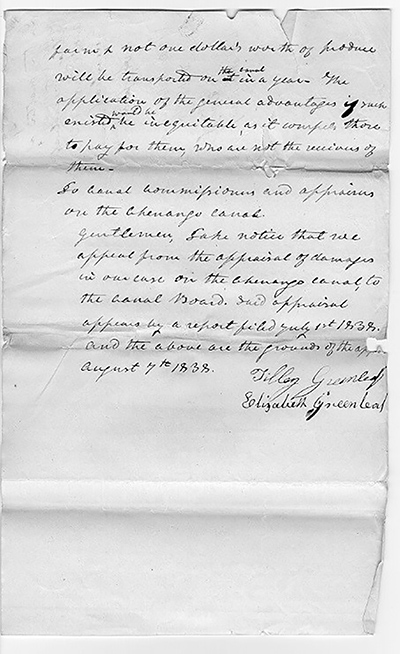 farm & not one dollars worth of produce
will be transported on it the canal in a year - The
application of the general advantages if such
existed would be inequitable as it compels those
to pay for them, who are not the receivers of
them -
To Canal Commissioners and appraisers
on the Chenango canal
Gentlemen, Take notice that we
appeal from the appraisal of damages
in our case on the Chenango canal, to
the Canal Board. Said appraisal
appears by a report filed July 1st 1838.
and the above are the grounds of the
August 7th 1838.
Tilley Greenleaf
Elizabeth Greenleaf